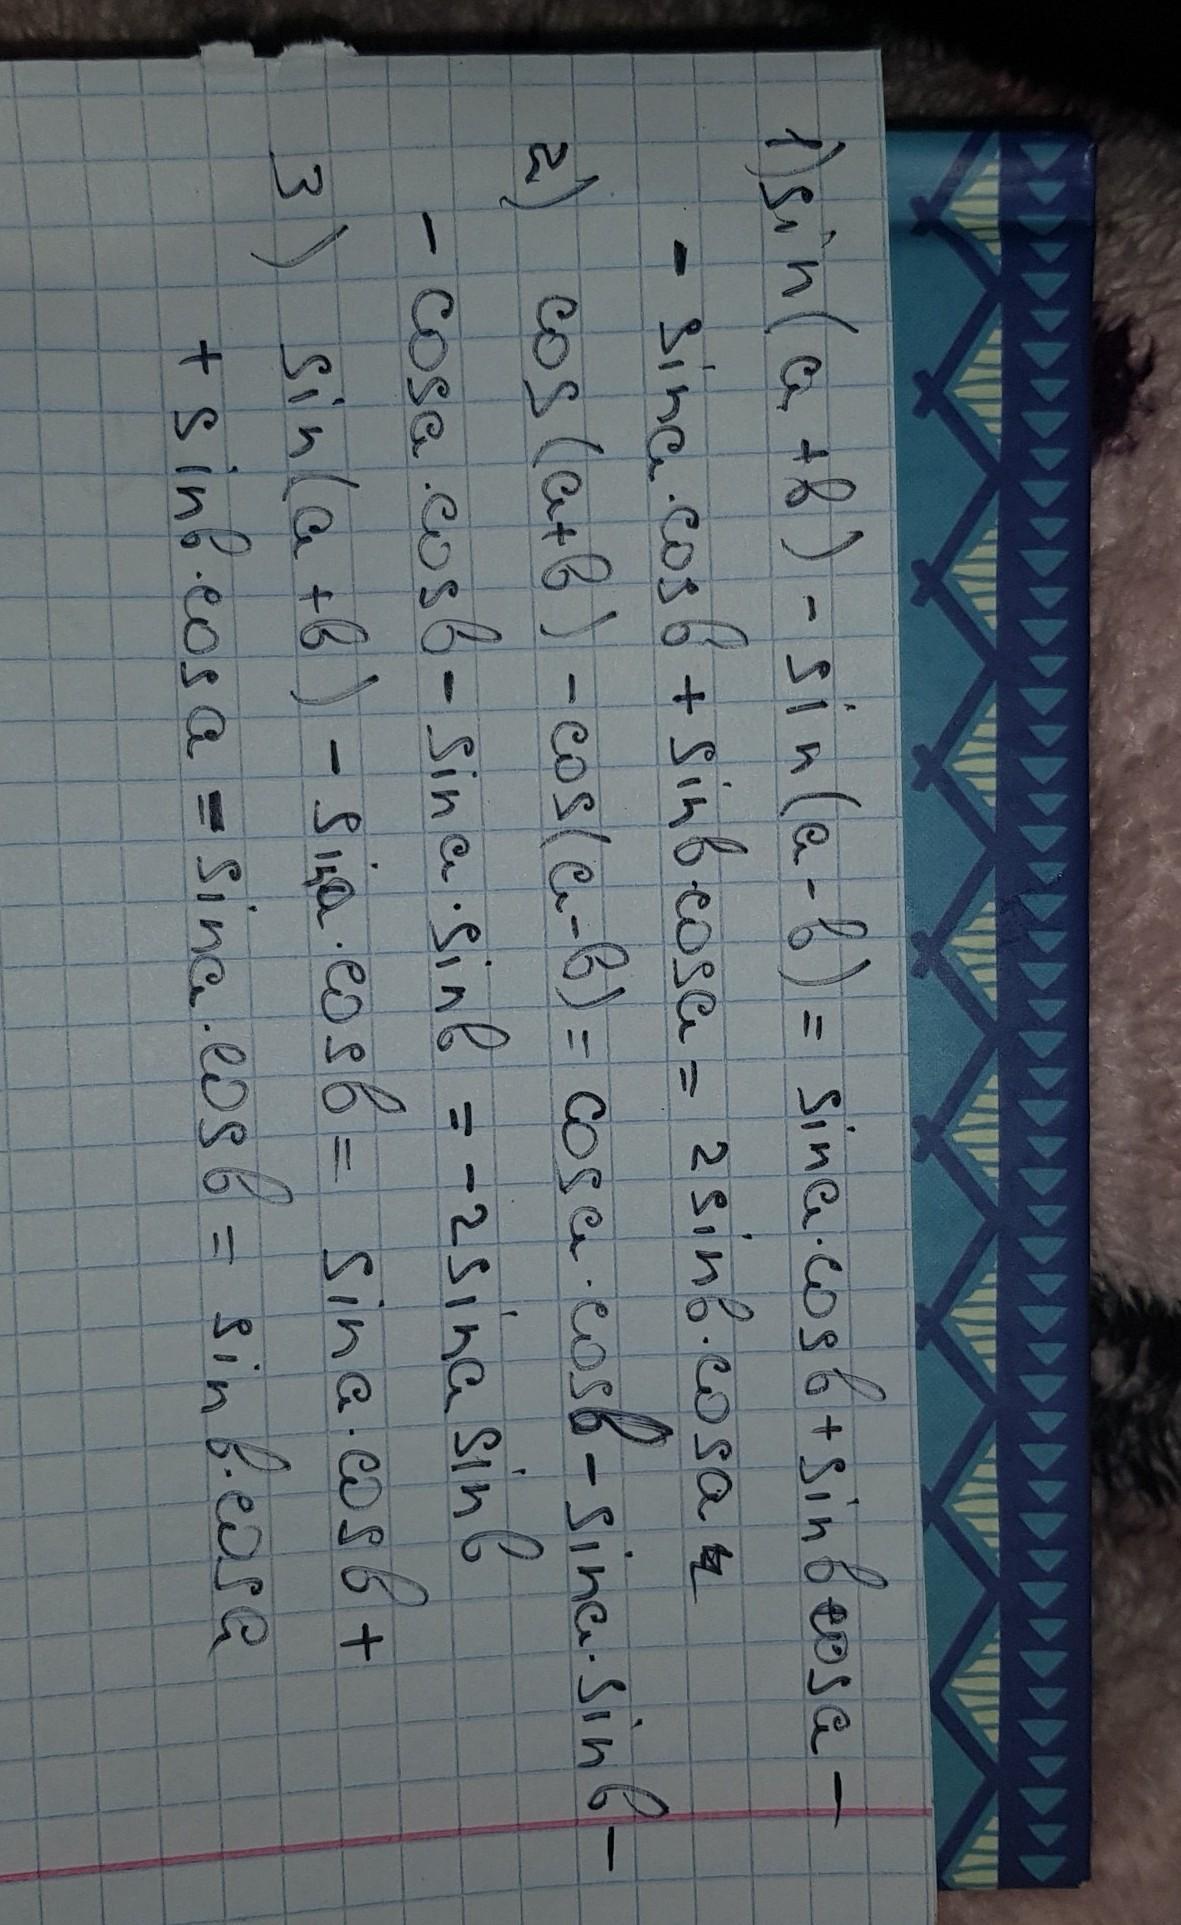 1) sin(a+b) - sin(a-b) = sina·cosb + sinb cosa -
- sina·cosb + sinb·cosa = 2sinb·cosa
2) cos(a+b) - cos(a-b) = cosa·cosb - sina·sinb -
- cosa·cosb - sina·sinb = -2sina sinb
3) sin(a+b) - sina·cosb = sina·cosb +
+ sinb·cosa = sina·cosb = sinb·cosa